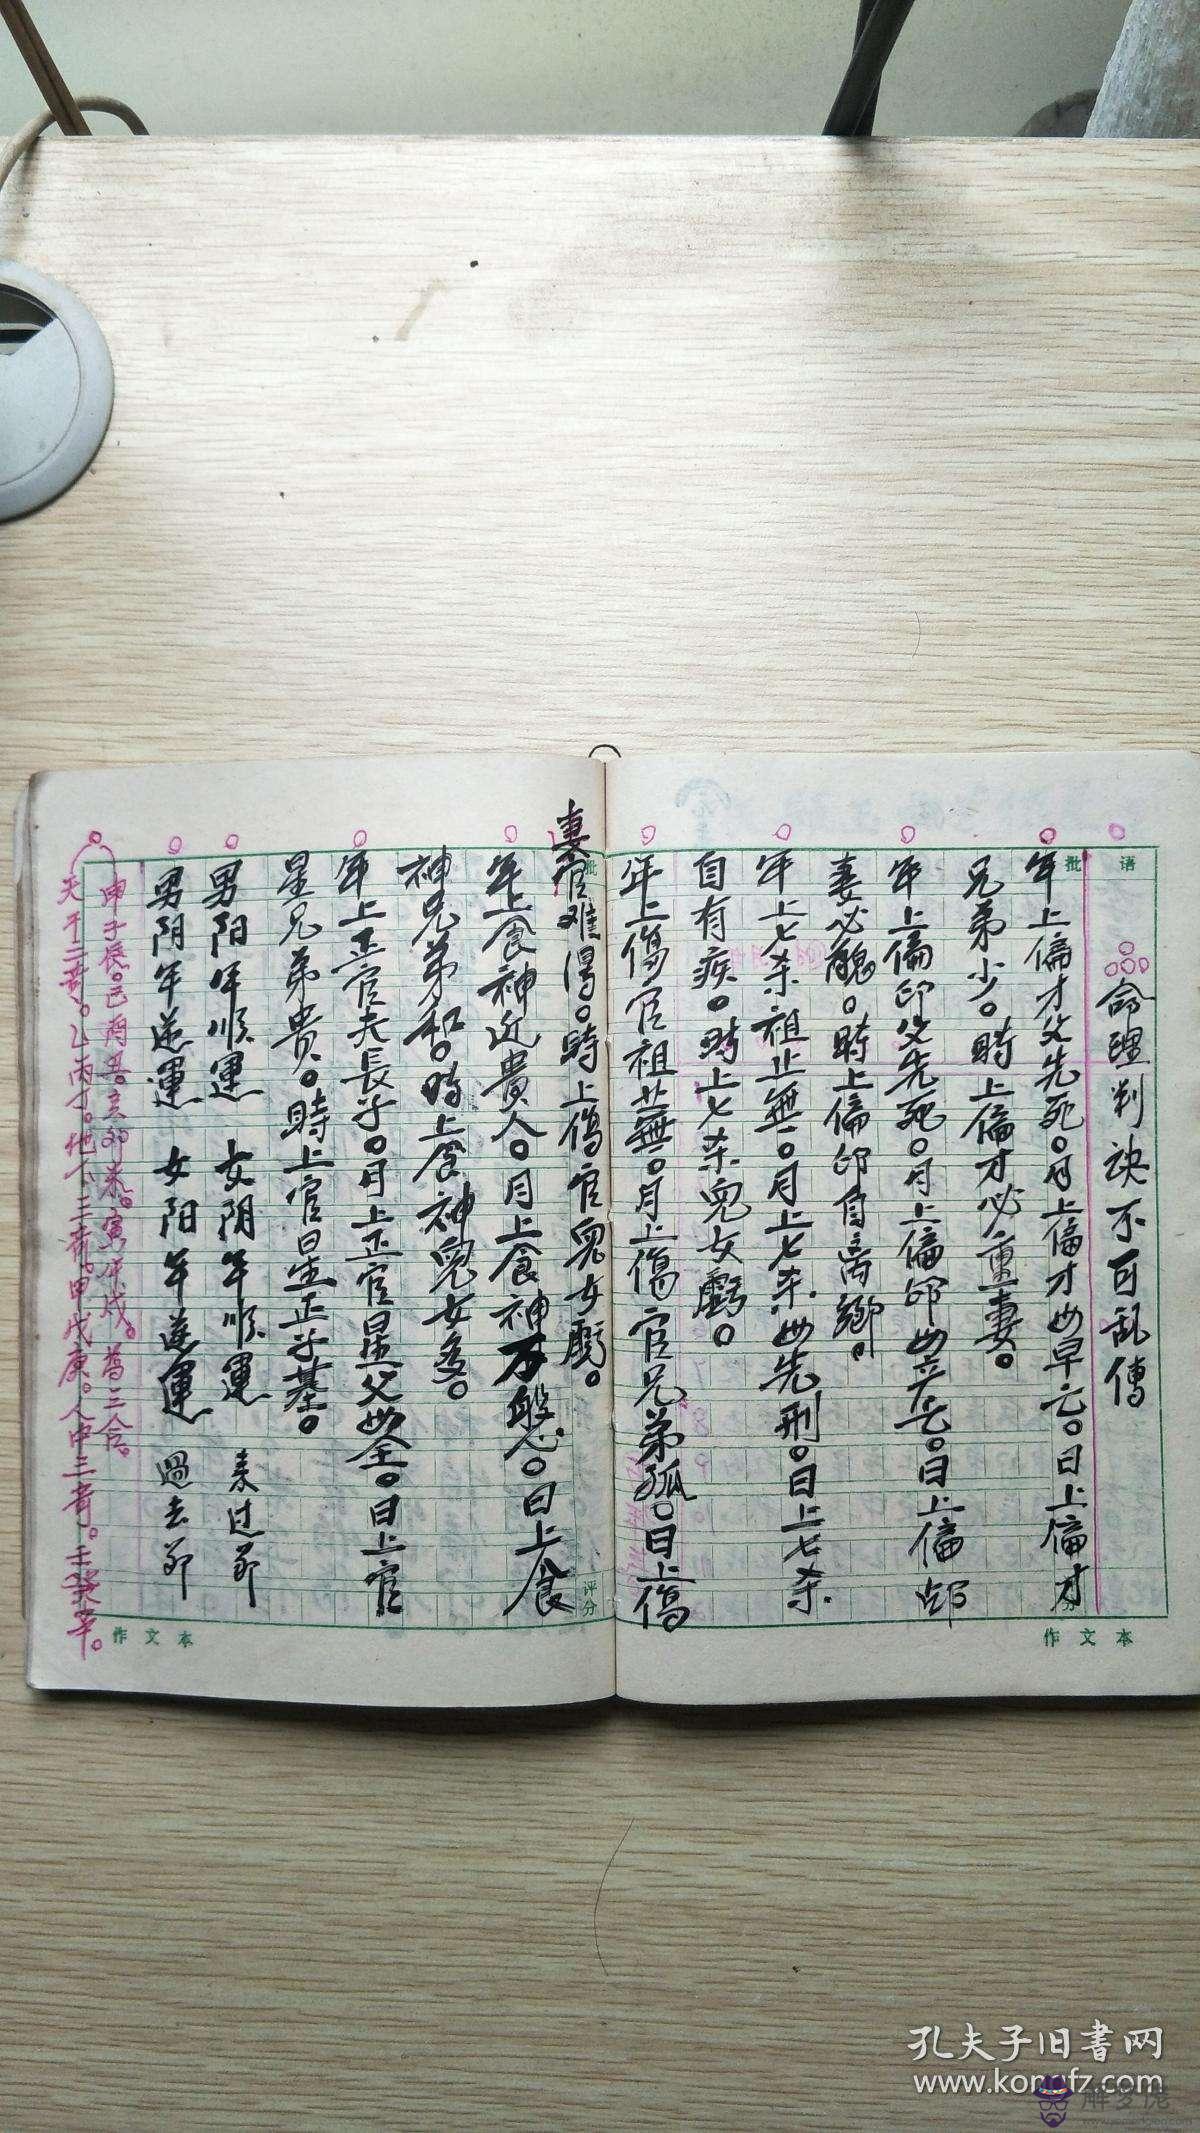 批语
命理判诀不可乱傳
年上偏才父先死。月上偏才母早亡。日上偏才
兄弟少。時上偏才必重妻。
年上偏印父先死。月上偏印母产亡。日上偏印
妻必醜。時上偏印自离鄉。
年上七杀祖业無。月上七杀母先刑。日上七杀
自有疾。時上七杀兒女虧。
年上傷官祖业無。月上傷官兄弟孤。日上傷
妻官难得。時上傷官兒女虧。
批
年上食神近貴人。月上食神不般心。日上食
神兄弟和。時上食神兒女多。
年上正官夫長子。月上正官星父母全。日上官
星兄弟貴。時上官星正子基。
男阳年顺運 女阴年顺運 未过节
男阴年逆運 女阳年逆運 過去节
申子辰。巳酉丑。亥卯未。寅午戌。為三合。
天干三奇。乙丙丁。地下三奇。甲戊庚。人中三奇。壬癸辛。
评分
作文本
作文本
孔夫子旧書网
www.kongfz.com
解梦佬